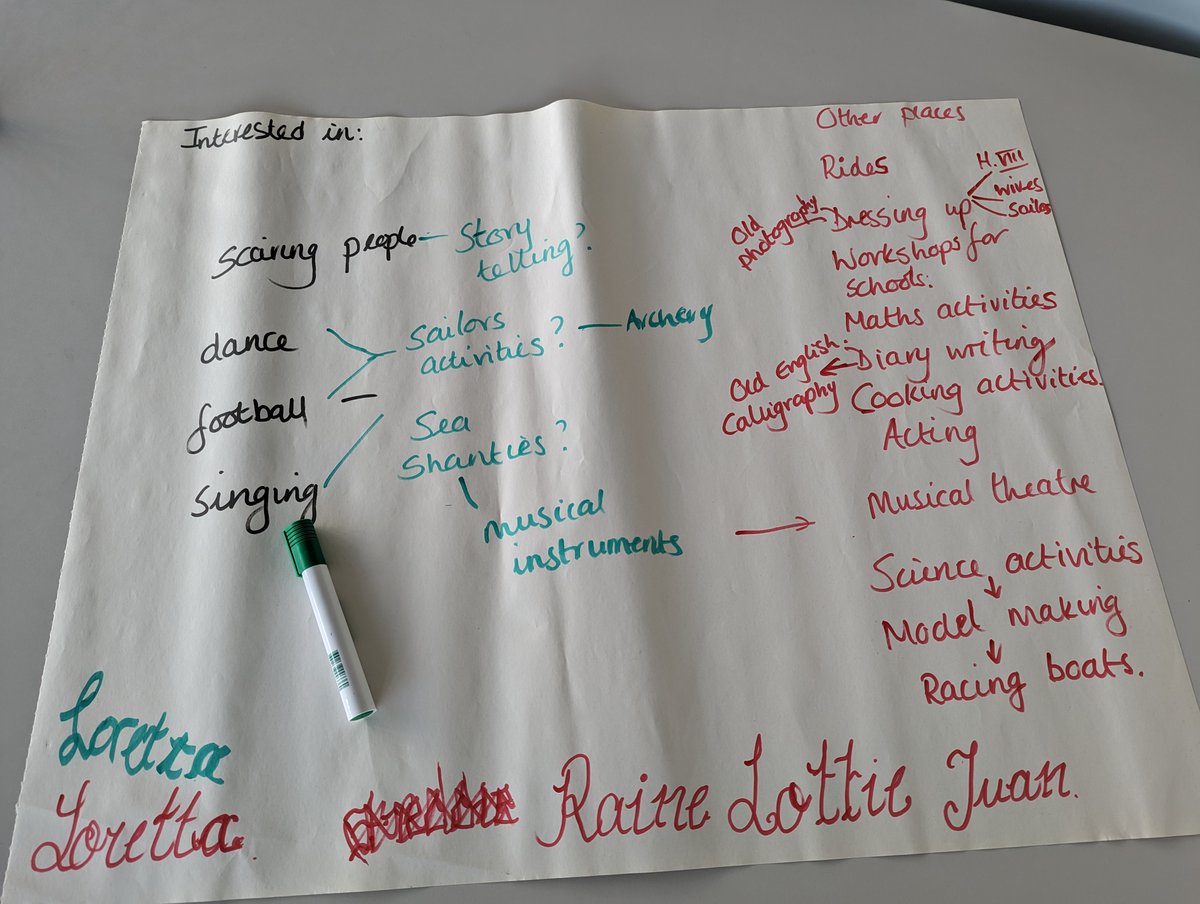 Interested in:
scairing people
Story
telling?
dance
football
singing
sailors
activities?
Archery
Sea
Shanties?
musical
instruments
Other places
Rides
Dressing up
H.VIII
wives
Sailor
Old
photography
Workshops for
schools:
Maths activities
Diary writing
Old English
Caligraphy
Cooking activities.
Acting
Musical theatre
Science activities
Model making
Racing boats.
Loretta
Loretta.
Raine Lottie Juan.